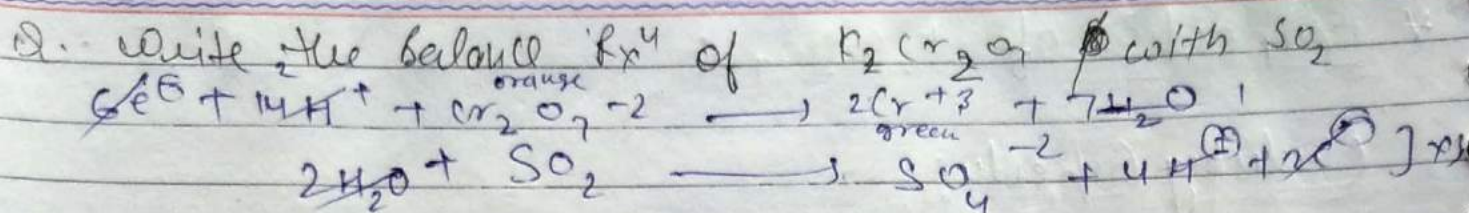 Q. Write the balance Rxⁿ of K₂Cr₂O₇ with SO₂
6e⊖ + 14H⁺ + Cr₂O₇⁻² orange ⟶ 2Cr⁺³ green + 7H₂O
2H₂O + SO₂ ⟶ SO₄⁻² + 4H⊕ + 2e⊖ ]